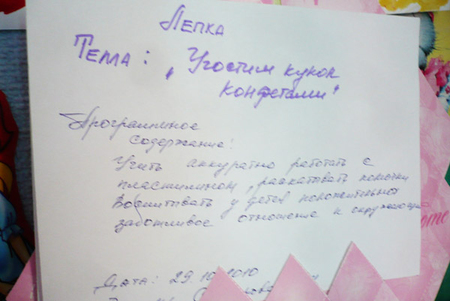 Лепка
Тема: "Угостим кукол
конфетами"
Программное
содержание:
Учить аккуратно работать с
пластилином, раскатывать комочки
Воспитывать у детей положительное
заботливое отношение к окружающим
Дата: 29.10.2010